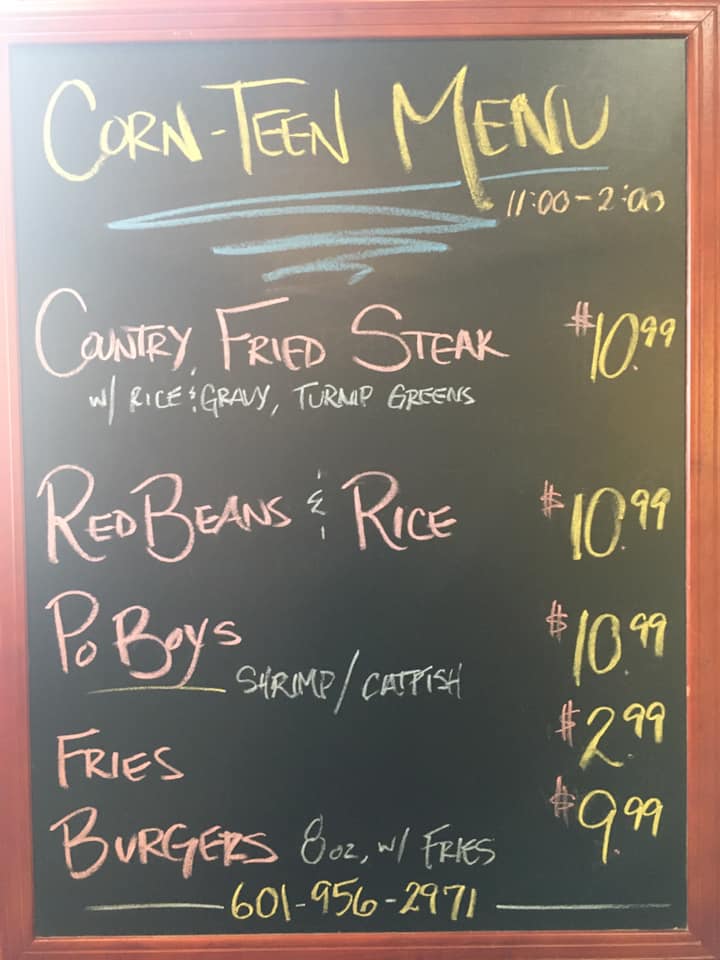 CORN-TEEN MENU
11:00-2:00
COUNTRY FRIED STEAK $10.99
W/ RICE & GRAVY, TURNIP GREENS
RED BEANS & RICE $10.99
PO BOYS $10.99
SHRIMP/CATFISH
FRIES $2.99
BURGERS 8oz, W/ FRIES $9.99
601-956-2971